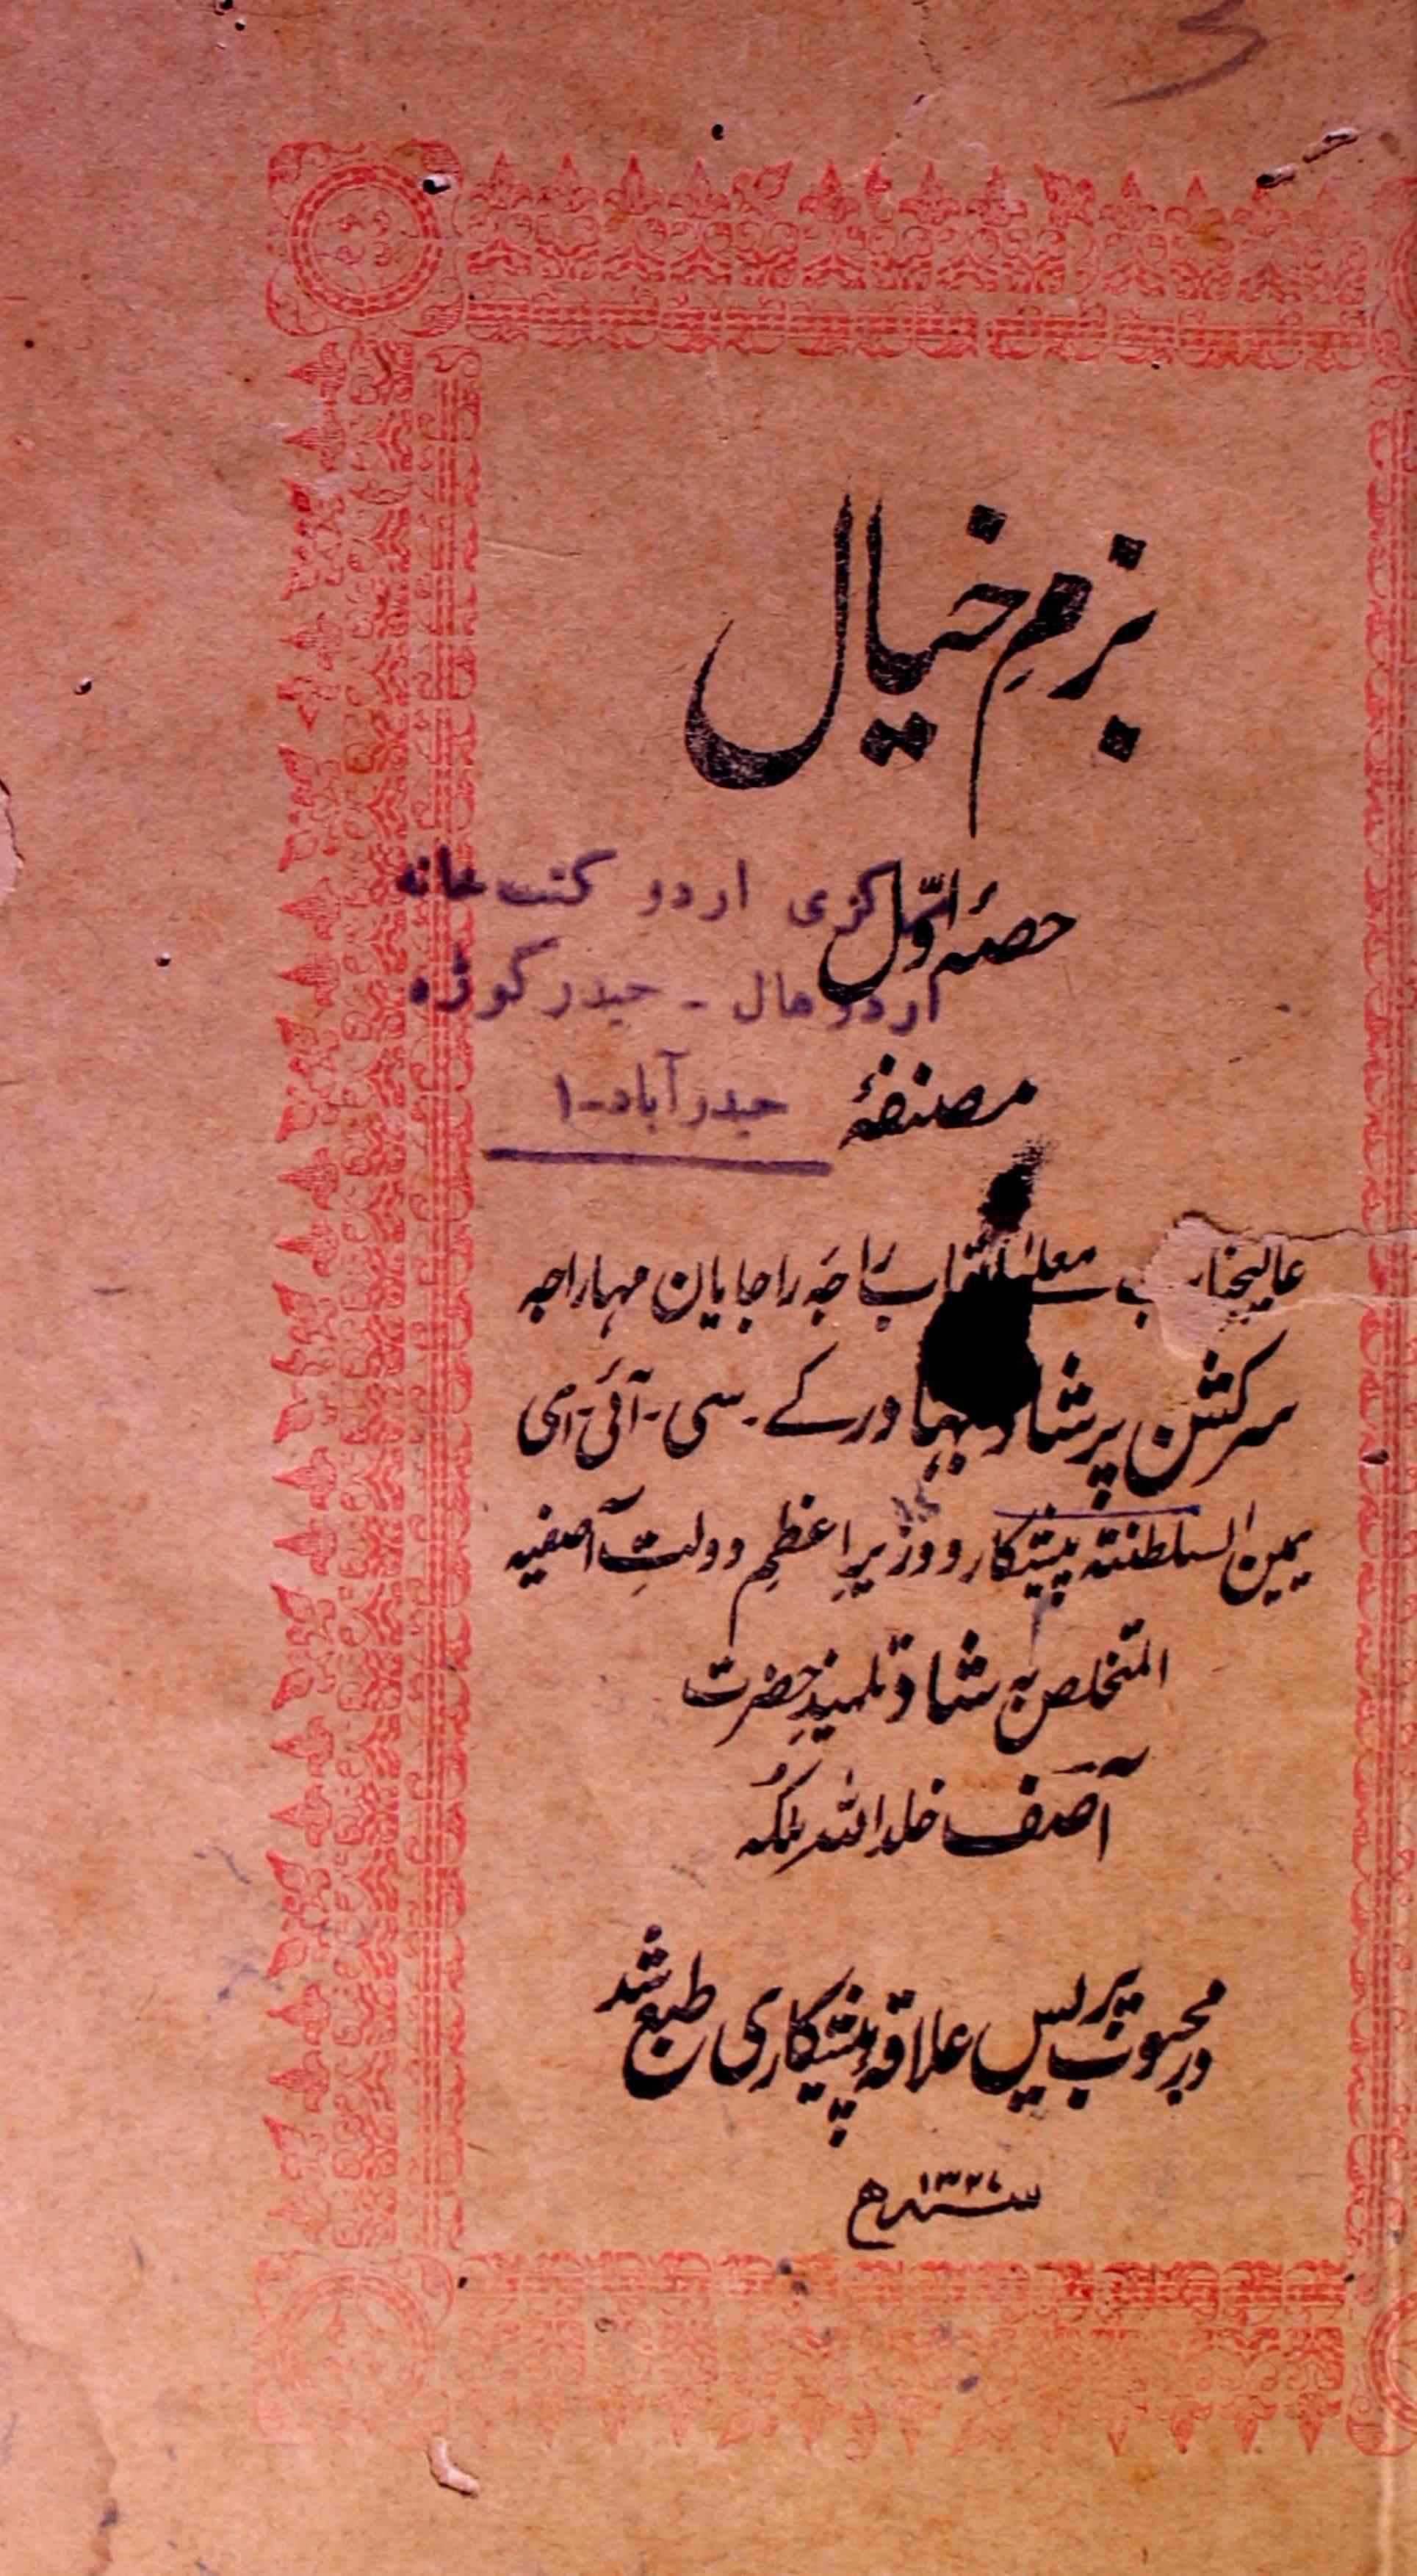 بزمِ خیال
حصۂ اوّل
مرکزی اردو کتب خانہ
اردو ہال - حیدر گوڑہ
حیدرآباد-۱
مصنفۂ
عالیجناب معلیٰ القاب راجہ راجایان مہاراجہ
سرکشن پرشاد بہادر کے-سی-آئی-ای
یمین السلطنتہ پیشکار و وزیرِ اعظمِ دولتِ آصفیہ
المتخلص بہ شاد تلمیذِ حضرت
آصف خلد اللہ ملکہُ
در محبوب پریس علاقہ پیشکاری طبع شد
سنہ ھ